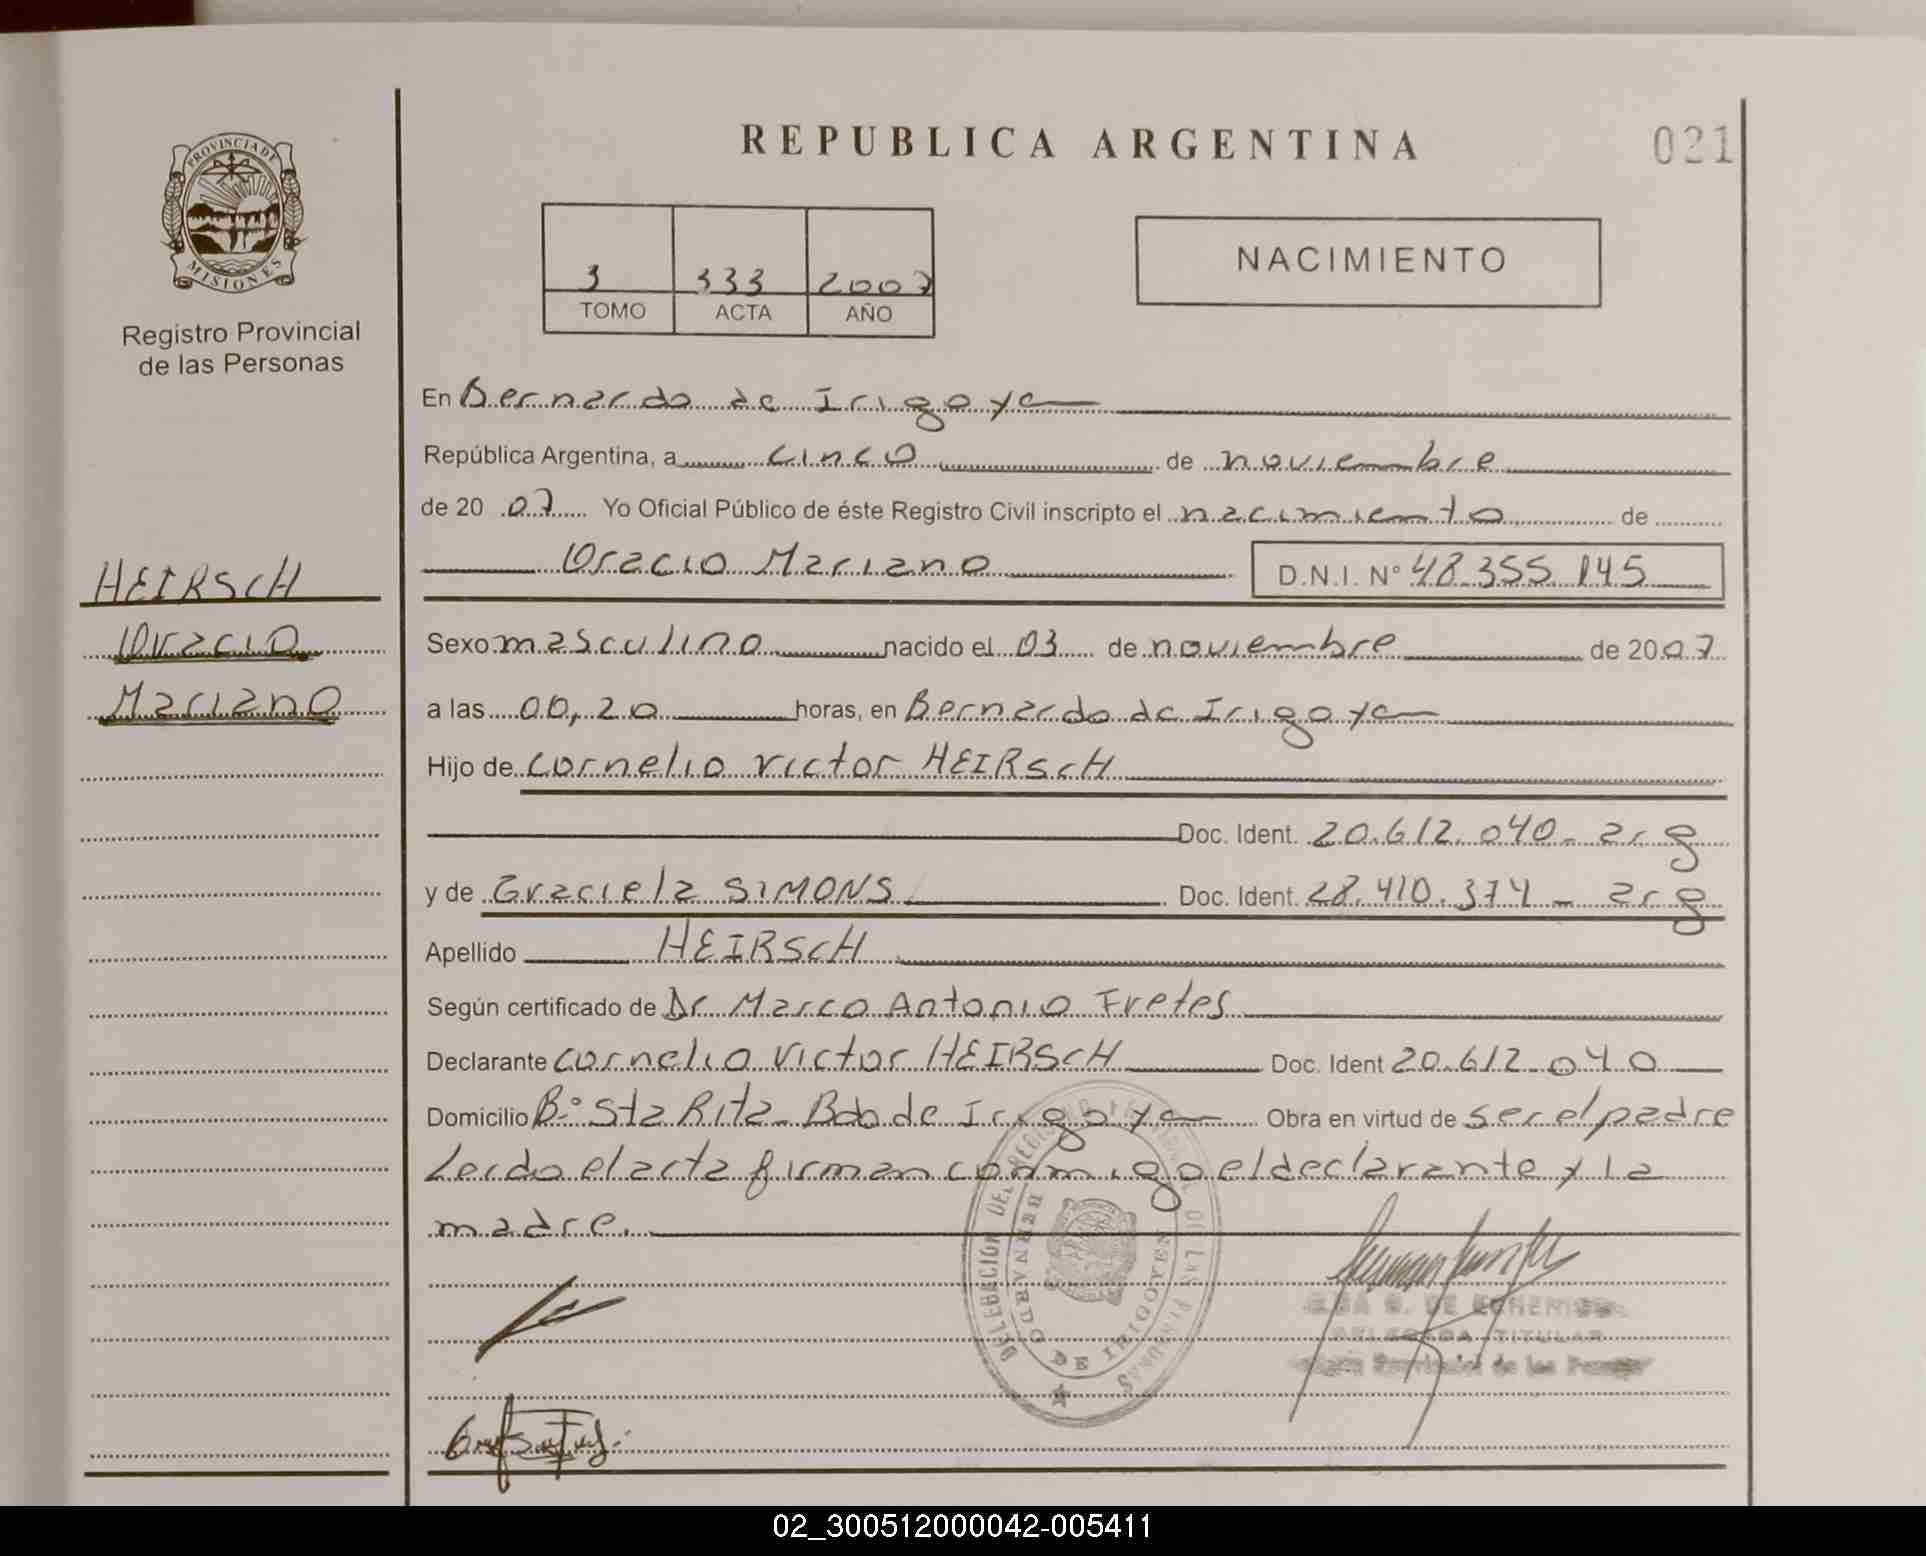 REPUBLICA ARGENTINA
021
PROVINCIA DE
MISIONES
Registro Provincial
de las Personas
3 333 2007
TOMO ACTA AÑO
NACIMIENTO
En Bernardo de Irigoyen
República Argentina, a cinco de noviembre
de 2007 Yo Oficial Público de éste Registro Civil inscripto el nacimiento de
Oracio Mariano D.N.I. N° 48.355.145
HEIRSCH
Oracio
Mariano
Sexo masculino nacido el 03 de noviembre de 2007
a las 00,20 horas, en Bernardo de Irigoyen
Hijo de Cornelio Victor HEIRSCH
Doc. Ident. 20.612.040 - arg
y de Graciela SIMONS Doc. Ident. 28.410.374 - arg
Apellido HEIRSCH
Según certificado de Dr Marco Antonio Fretes
Declarante Cornelio Victor HEIRSCH Doc. Ident 20.612.040
Domicilio B° Sta Rita - Bdo de Irigoyen Obra en virtud de ser el padre
Leido el acta firman conmigo el declarante y la
madre.
DELEGACION DEL REGISTRO DE LAS PERSONAS
BERNARDO DE IRIGOYEN
DELEGADA TITULAR
Provincial de las Personas
02_300512000042-005411